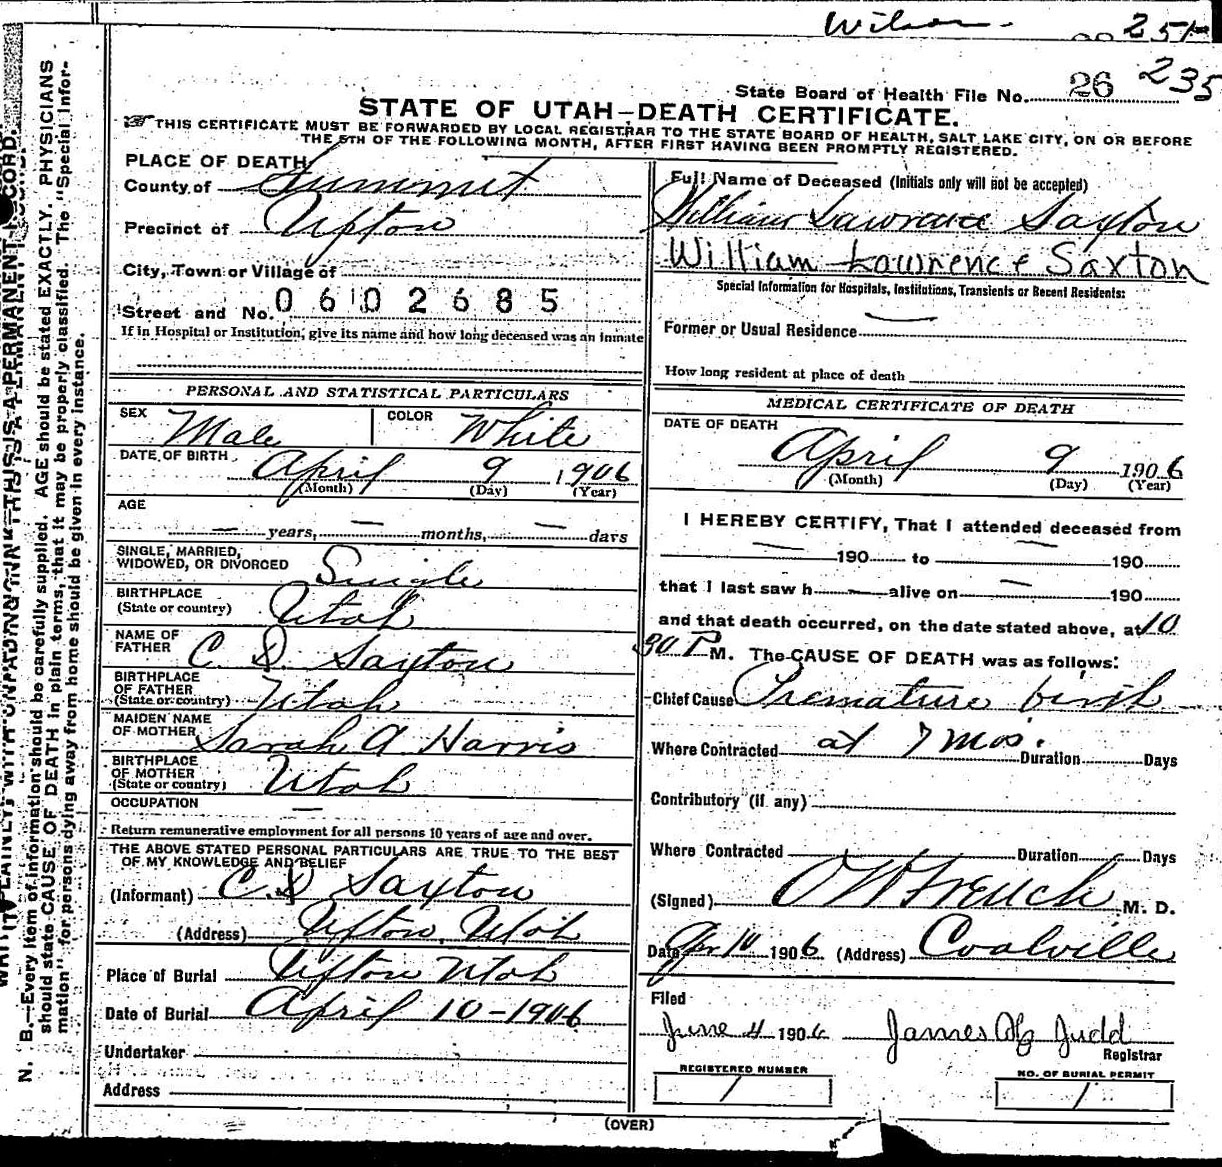 Wilson 251
State Board of Health File No. 26 235
STATE OF UTAH—DEATH CERTIFICATE.
THIS CERTIFICATE MUST BE FORWARDED BY LOCAL REGISTRAR TO THE STATE BOARD OF HEALTH, SALT LAKE CITY, ON OR BEFORE
THE 5TH OF THE FOLLOWING MONTH, AFTER FIRST HAVING BEEN PROMPTLY REGISTERED.
PLACE OF DEATH
County of Summit
Precinct of Upton
City, Town or Village of
Street and No. 0602685
If in Hospital or Institution, give its name and how long deceased was an inmate
PERSONAL AND STATISTICAL PARTICULARS
SEX Male COLOR White
DATE OF BIRTH April 9 1906
(Month) (Day) (Year)
AGE
— years, — months, — days
SINGLE, MARRIED,
WIDOWED, OR DIVORCED Single
BIRTHPLACE
(State or country) Utah
NAME OF
FATHER C D Saxton
BIRTHPLACE
OF FATHER
(State or country) Utah
MAIDEN NAME
OF MOTHER Sarah A Harris
BIRTHPLACE
OF MOTHER
(State or country) Utah
OCCUPATION —
Return remunerative employment for all persons 10 years of age and over.
THE ABOVE STATED PERSONAL PARTICULARS ARE TRUE TO THE BEST
OF MY KNOWLEDGE AND BELIEF
(Informant) C. D Saxton
(Address) Upton, Utah
Place of Burial Upton Utah
Date of Burial April 10-1906
Undertaker
Address
Full Name of Deceased (Initials only will not be accepted)
William Lawrence Saxton
William Lawrence Saxton
Special Information for Hospitals, Institutions, Transients or Recent Residents:
Former or Usual Residence —
How long resident at place of death
MEDICAL CERTIFICATE OF DEATH
DATE OF DEATH
April 9 1906
(Month) (Day) (Year)
I HEREBY CERTIFY, That I attended deceased from
— 190 to — 190
that I last saw h — alive on — 190
and that death occurred, on the date stated above, at 10
30 P M. The CAUSE OF DEATH was as follows:
Chief Cause Premature birth
Where Contracted at 7 mos. Duration Days
Contributory (if any)
Where Contracted Duration Days
(Signed) O W French M. D.
Date Apr 10 1906 (Address) Coalville
Filed
June 4 1906 James Judd
Registrar
REGISTERED NUMBER
1
NO. OF BURIAL PERMIT
1
(OVER)
THIS IS A PERMANENT RECORD.
N. B.—Every item of information should be carefully supplied. AGE should be stated EXACTLY. PHYSICIANS
should state CAUSE OF DEATH in plain terms, that it may be properly classified. The "Special Infor-
mation" for persons dying away from home should be given in every instance.